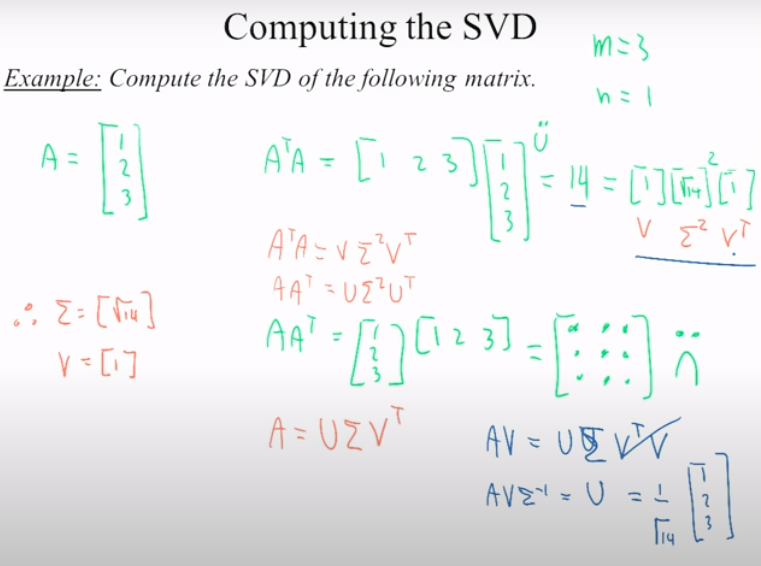 Computing the SVD
m = 3
Example: Compute the SVD of the following matrix.
n = 1
A = [1 2 3]
AᵀA = [1 2 3] [1 2 3] = 14 = [1][√14]²[1]
V Σ² Vᵀ
AᵀA = V Σ² Vᵀ
AAᵀ = U Σ² Uᵀ
∴ Σ = [√14]
V = [1]
AAᵀ = [1 2 3] [1 2 3] = [· · · · · · · · ·]
A = U Σ Vᵀ
AV = U Σ VᵀV
AVΣ⁻¹ = U = 1/√14 [1 2 3]